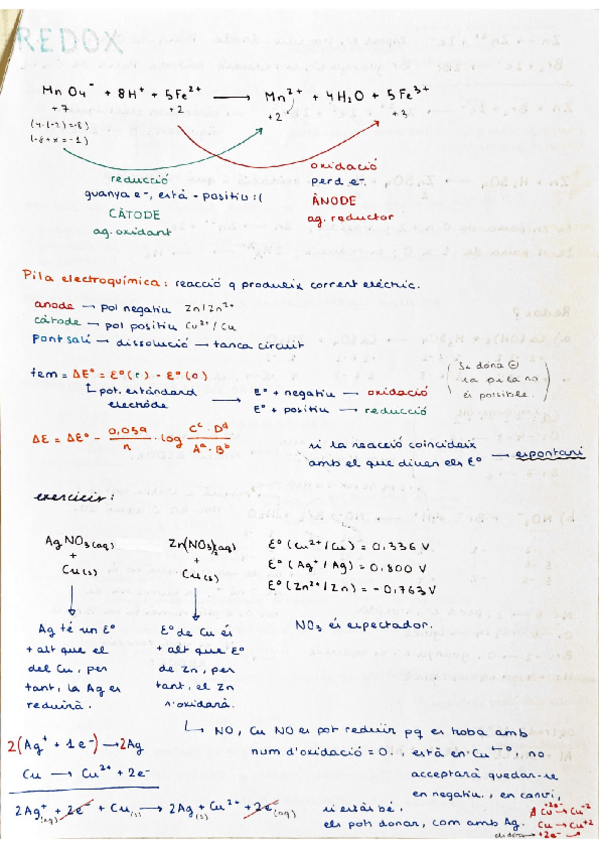 REDOX
MnO4⁻ + 8H⁺ + 5Fe²⁺ → Mn²⁺ + 4H2O + 5Fe³⁺
+7 +2 +2 +3
(4·(-2)=-8)
(-8+x=-1)
reducció
guanya e⁻, està - positiu :(
CÀTODE
ag. oxidant
oxidació
perd e⁻.
ÀNODE
ag. reductor
Pila electroquímica: reacció q produeix corrent elèctric.
anode → pol negatiu Zn/Zn²⁺
càtode → pol positiu Cu²⁺/Cu
pont salí → dissolució → tanca circuit
fem = ΔE° = E°(r) - E°(o)
↳ pot. estàndard
elèctrode
E° + negatiu → oxidació
E° + positiu → reducció
Si dona ⊖
la pila no
és possible.
ΔE = ΔE° - 0,059/n · log C^c · D^d / A^a · B^b
si la reacció coincideix
amb el que diuen els E° → espontani
exercicis:
AgNO3(aq)
+
Cu(s)
Ag té un E°
+ alt que el
del Cu, per
tant, la Ag es
reduirà.
Zn(NO3)2(aq)
+
Cu(s)
E° de Cu és
+ alt que E°
de Zn, per
tant, el Zn
s'oxidarà.
E°(Cu²⁺/Cu) = 0,336 V
E°(Ag⁺/Ag) = 0,800 V
E°(Zn²⁺/Zn) = -0,763 V
NO3 és espectador.
↳ NO, Cu NO es pot reduir pq es troba amb
num d'oxidació = 0., està en Cu⁰, no
acceptarà quedar-se
en negatiu., en canvi,
si està bé.
els pot donar, com amb Ag.
2(Ag⁺ + 1e⁻) → 2Ag
Cu → Cu²⁺ + 2e⁻
2Ag⁺(aq) + 2e⁻ + Cu(s) → 2Ag(s) + Cu²⁺ + 2e⁻(aq)
+2e⁻
Cu → Cu⁻²
Cu → Cu⁺²
+2e⁻